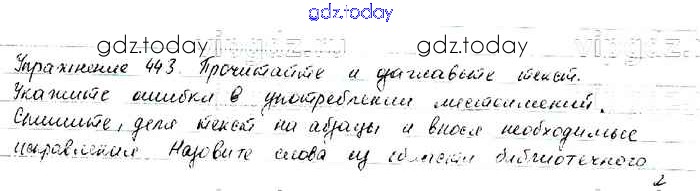 gdz.today
gdz.today vipgdz.ru gdz.today vipgdz.
Упражнение 443. Прочитайте и озаглавьте текст.
Укажите ошибки в употреблении местоимений.
Спишите, деля текст на абзацы и внося необходимые
исправления. Назовите слова из области библиотечного